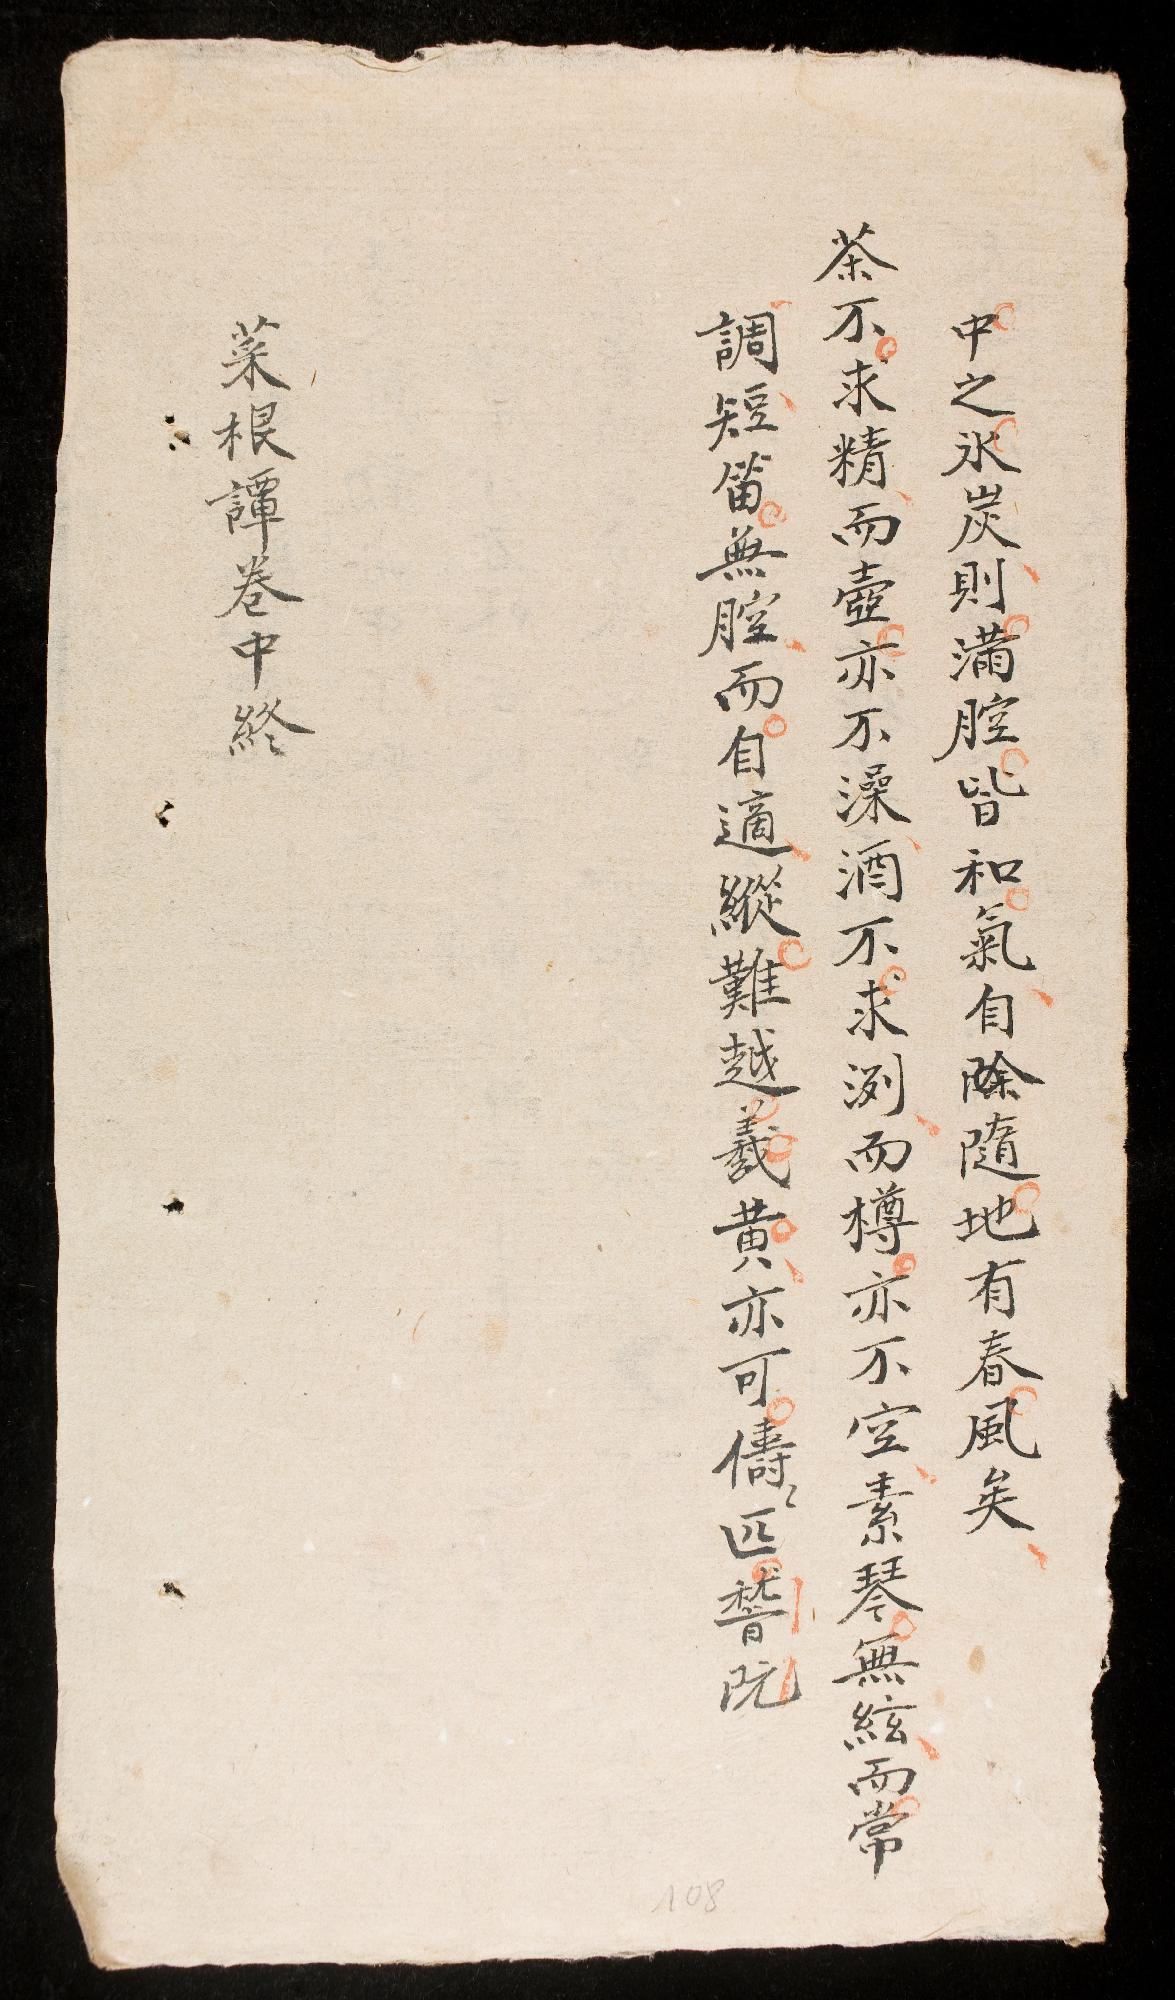 中之氷炭則滿腔皆和氣自除隨地有春風矣
茶不求精而壺亦不澡酒不求洌而樽亦不空素琴無絃而常
調短笛無腔而自適縱難越羲黄亦可儔匹嵇阮
菜根譚卷中終
108